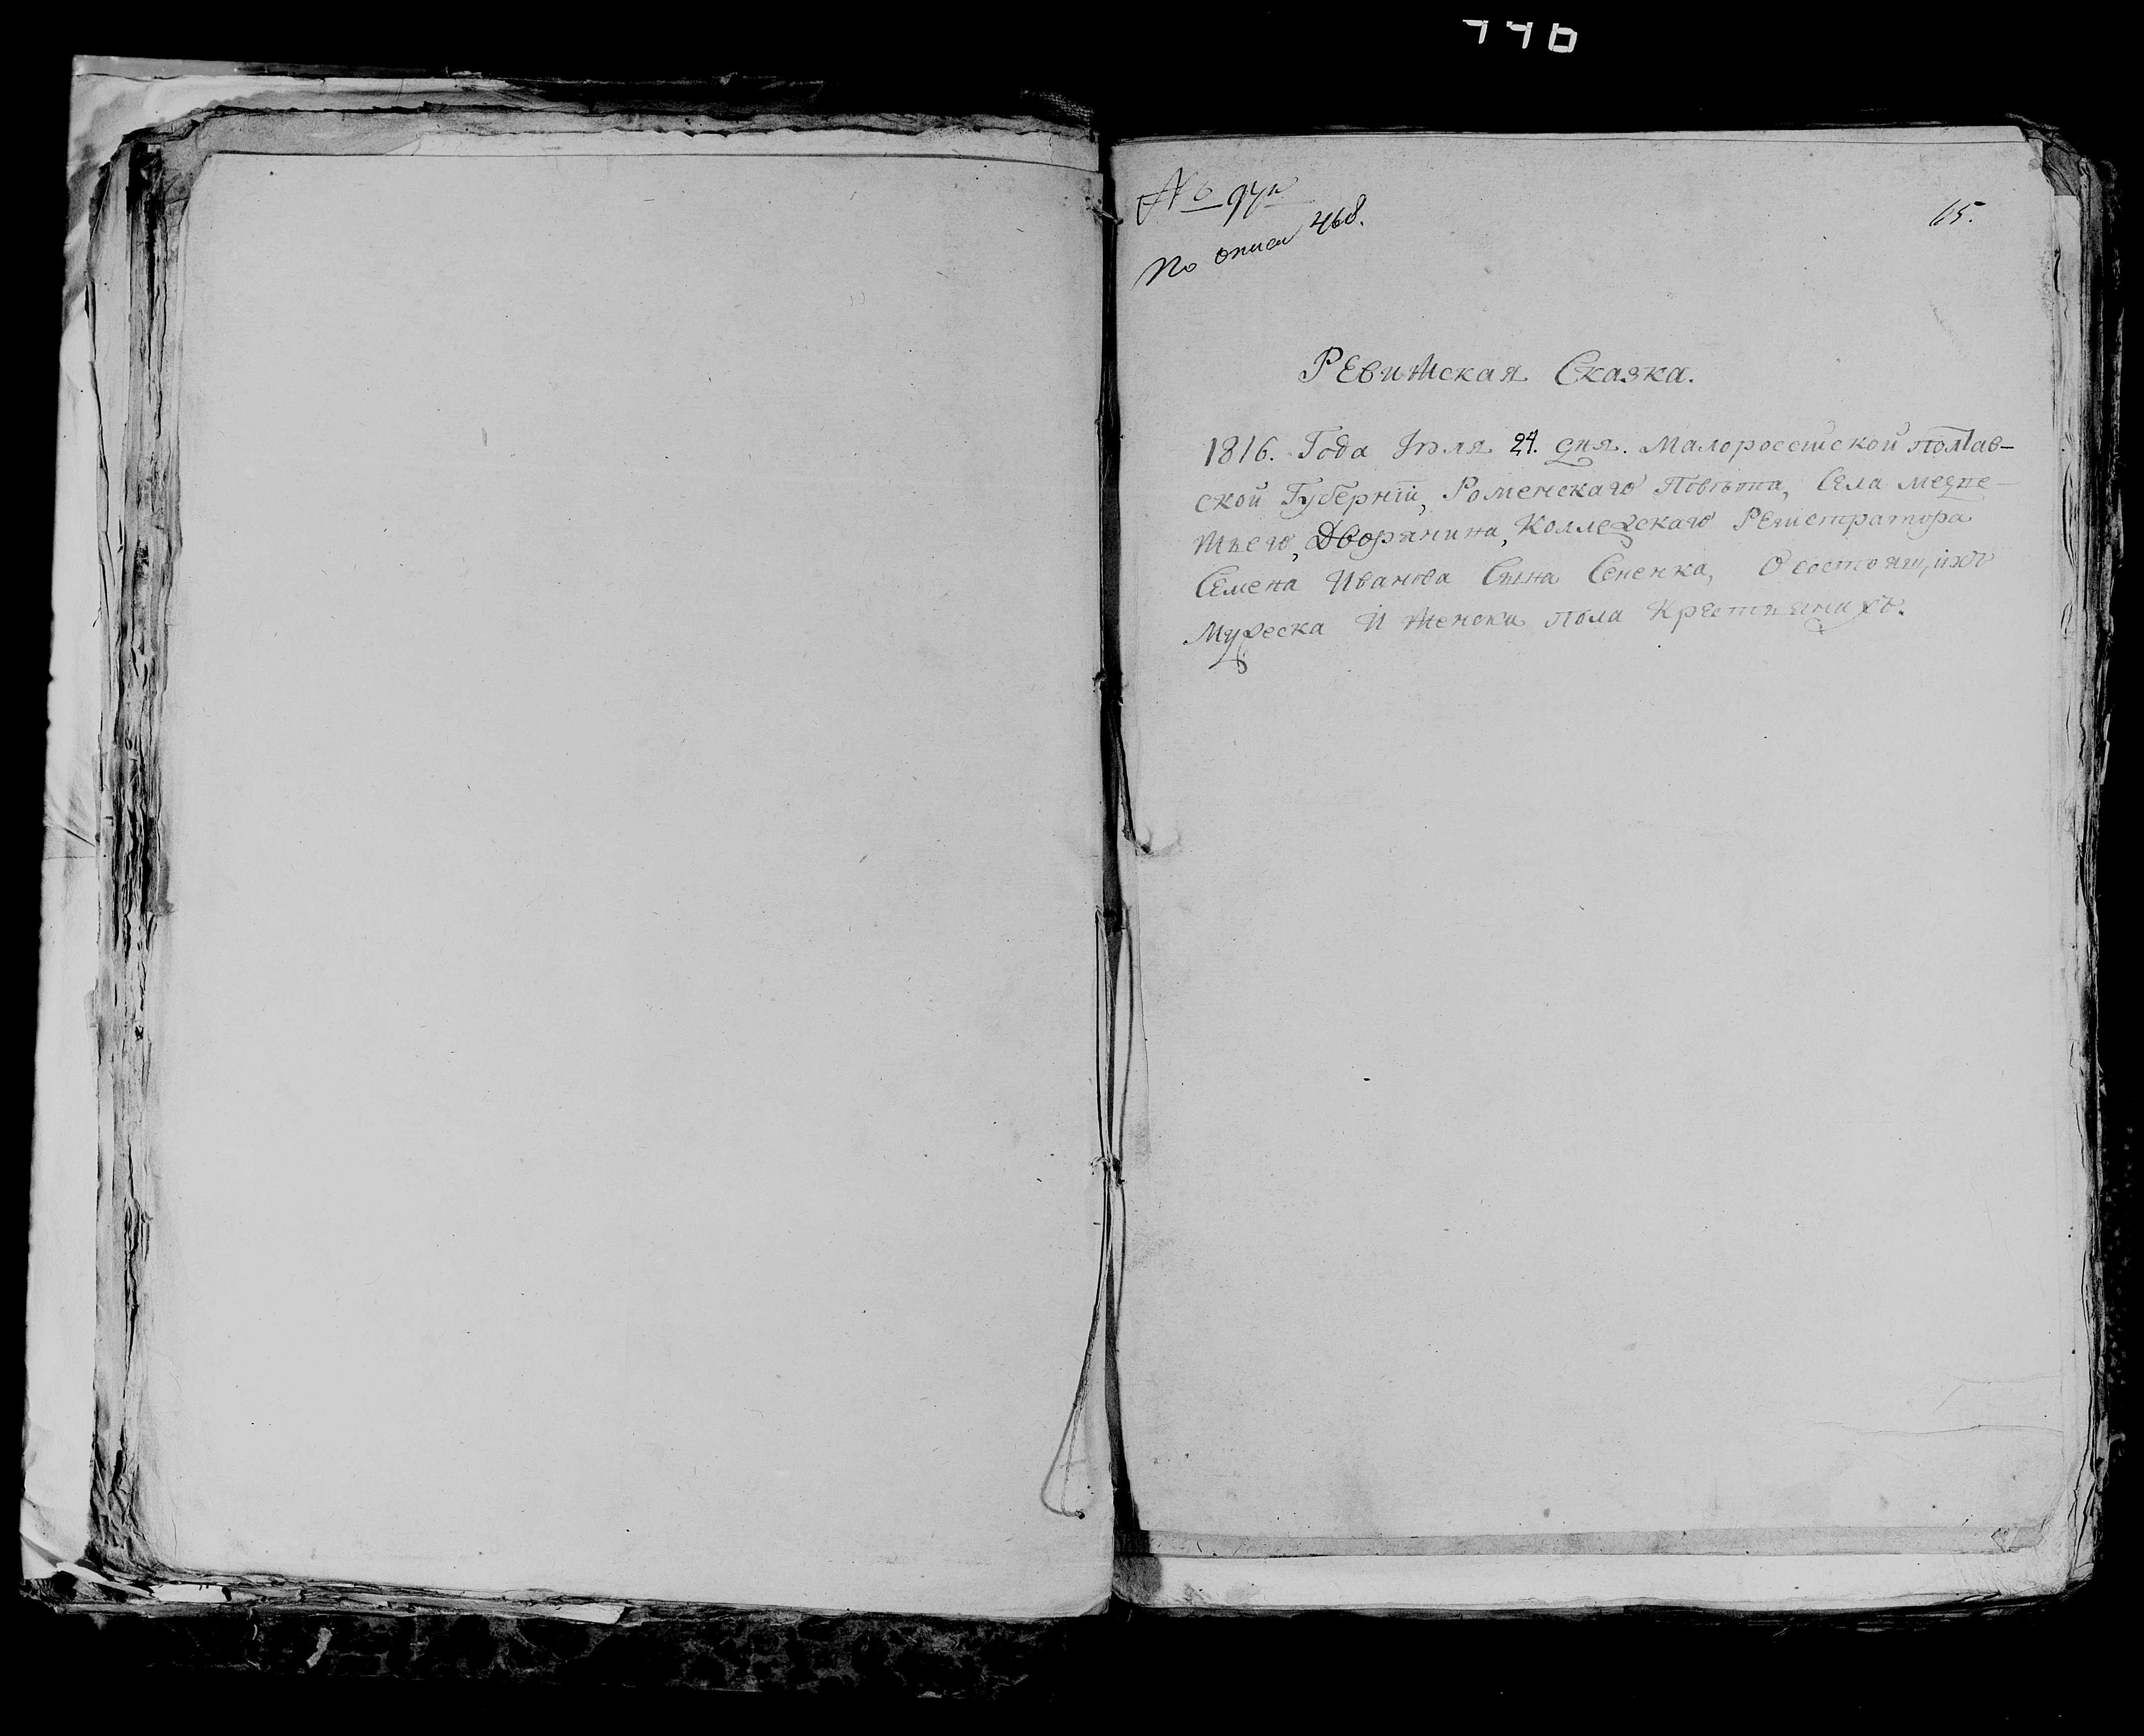 По описи 468.
15.
Ревижская Сказка.
1816. Года Июля 24. дня. Малоросстйской полтав-
ской Губернїи, Роменскаго Повѣта, Села медве-
жьего, Дворянина, Коллежскаго Регистратора
Семена Иванова Сына Сененка, О состоящихъ
Мужеска И женска пола Крестьянахъ.